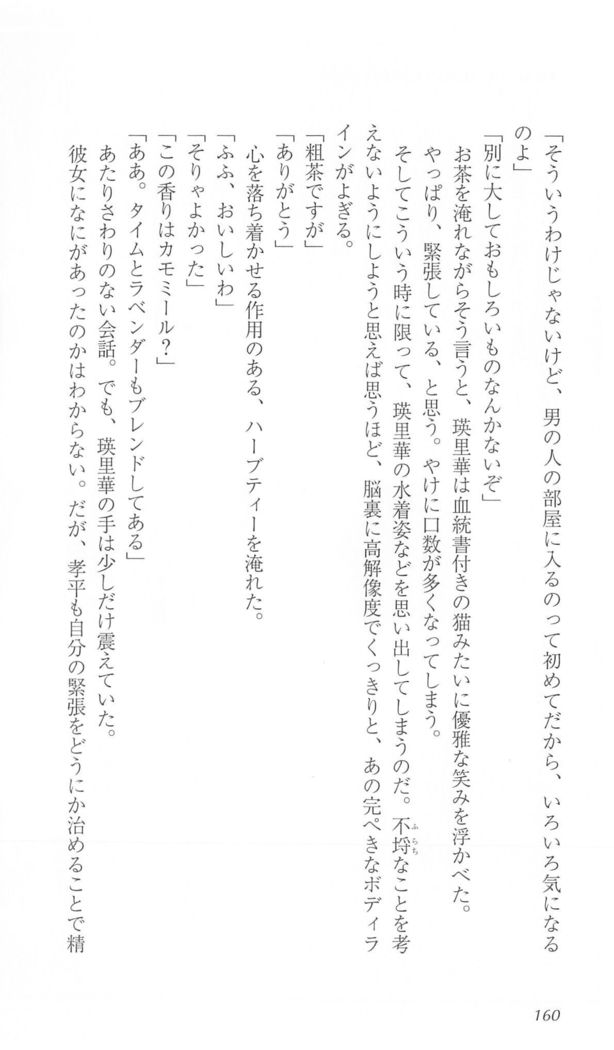 「そういうわけじゃないけど、男の人の部屋に入るのって初めてだから、いろいろ気になる
のよ」
「別に大しておもしろいものなんかないぞ」
お茶を淹れながらそう言うと、瑛里華は血統書付きの猫みたいに優雅な笑みを浮かべた。
やっぱり、緊張している、と思う。やけに口数が多くなってしまう。
そしてこういう時に限って、瑛里華の水着姿などを思い出してしまうのだ。不埒なことを考
えないようにしようと思えば思うほど、脳裏に高解像度でくっきりと、あの完ぺきなボディラ
インがよぎる。
「粗茶ですが」
「ありがとう」
心を落ち着かせる作用のある、ハーブティーを淹れた。
「ふふ、おいしいわ」
「そりゃよかった」
「この香りはカモミール？」
「ああ。タイムとラベンダーもブレンドしてある」
あたりさわりのない会話。でも、瑛里華の手は少しだけ震えていた。
彼女になにがあったのかはわからない。だが、孝平も自分の緊張をどうにか治めることで精
160